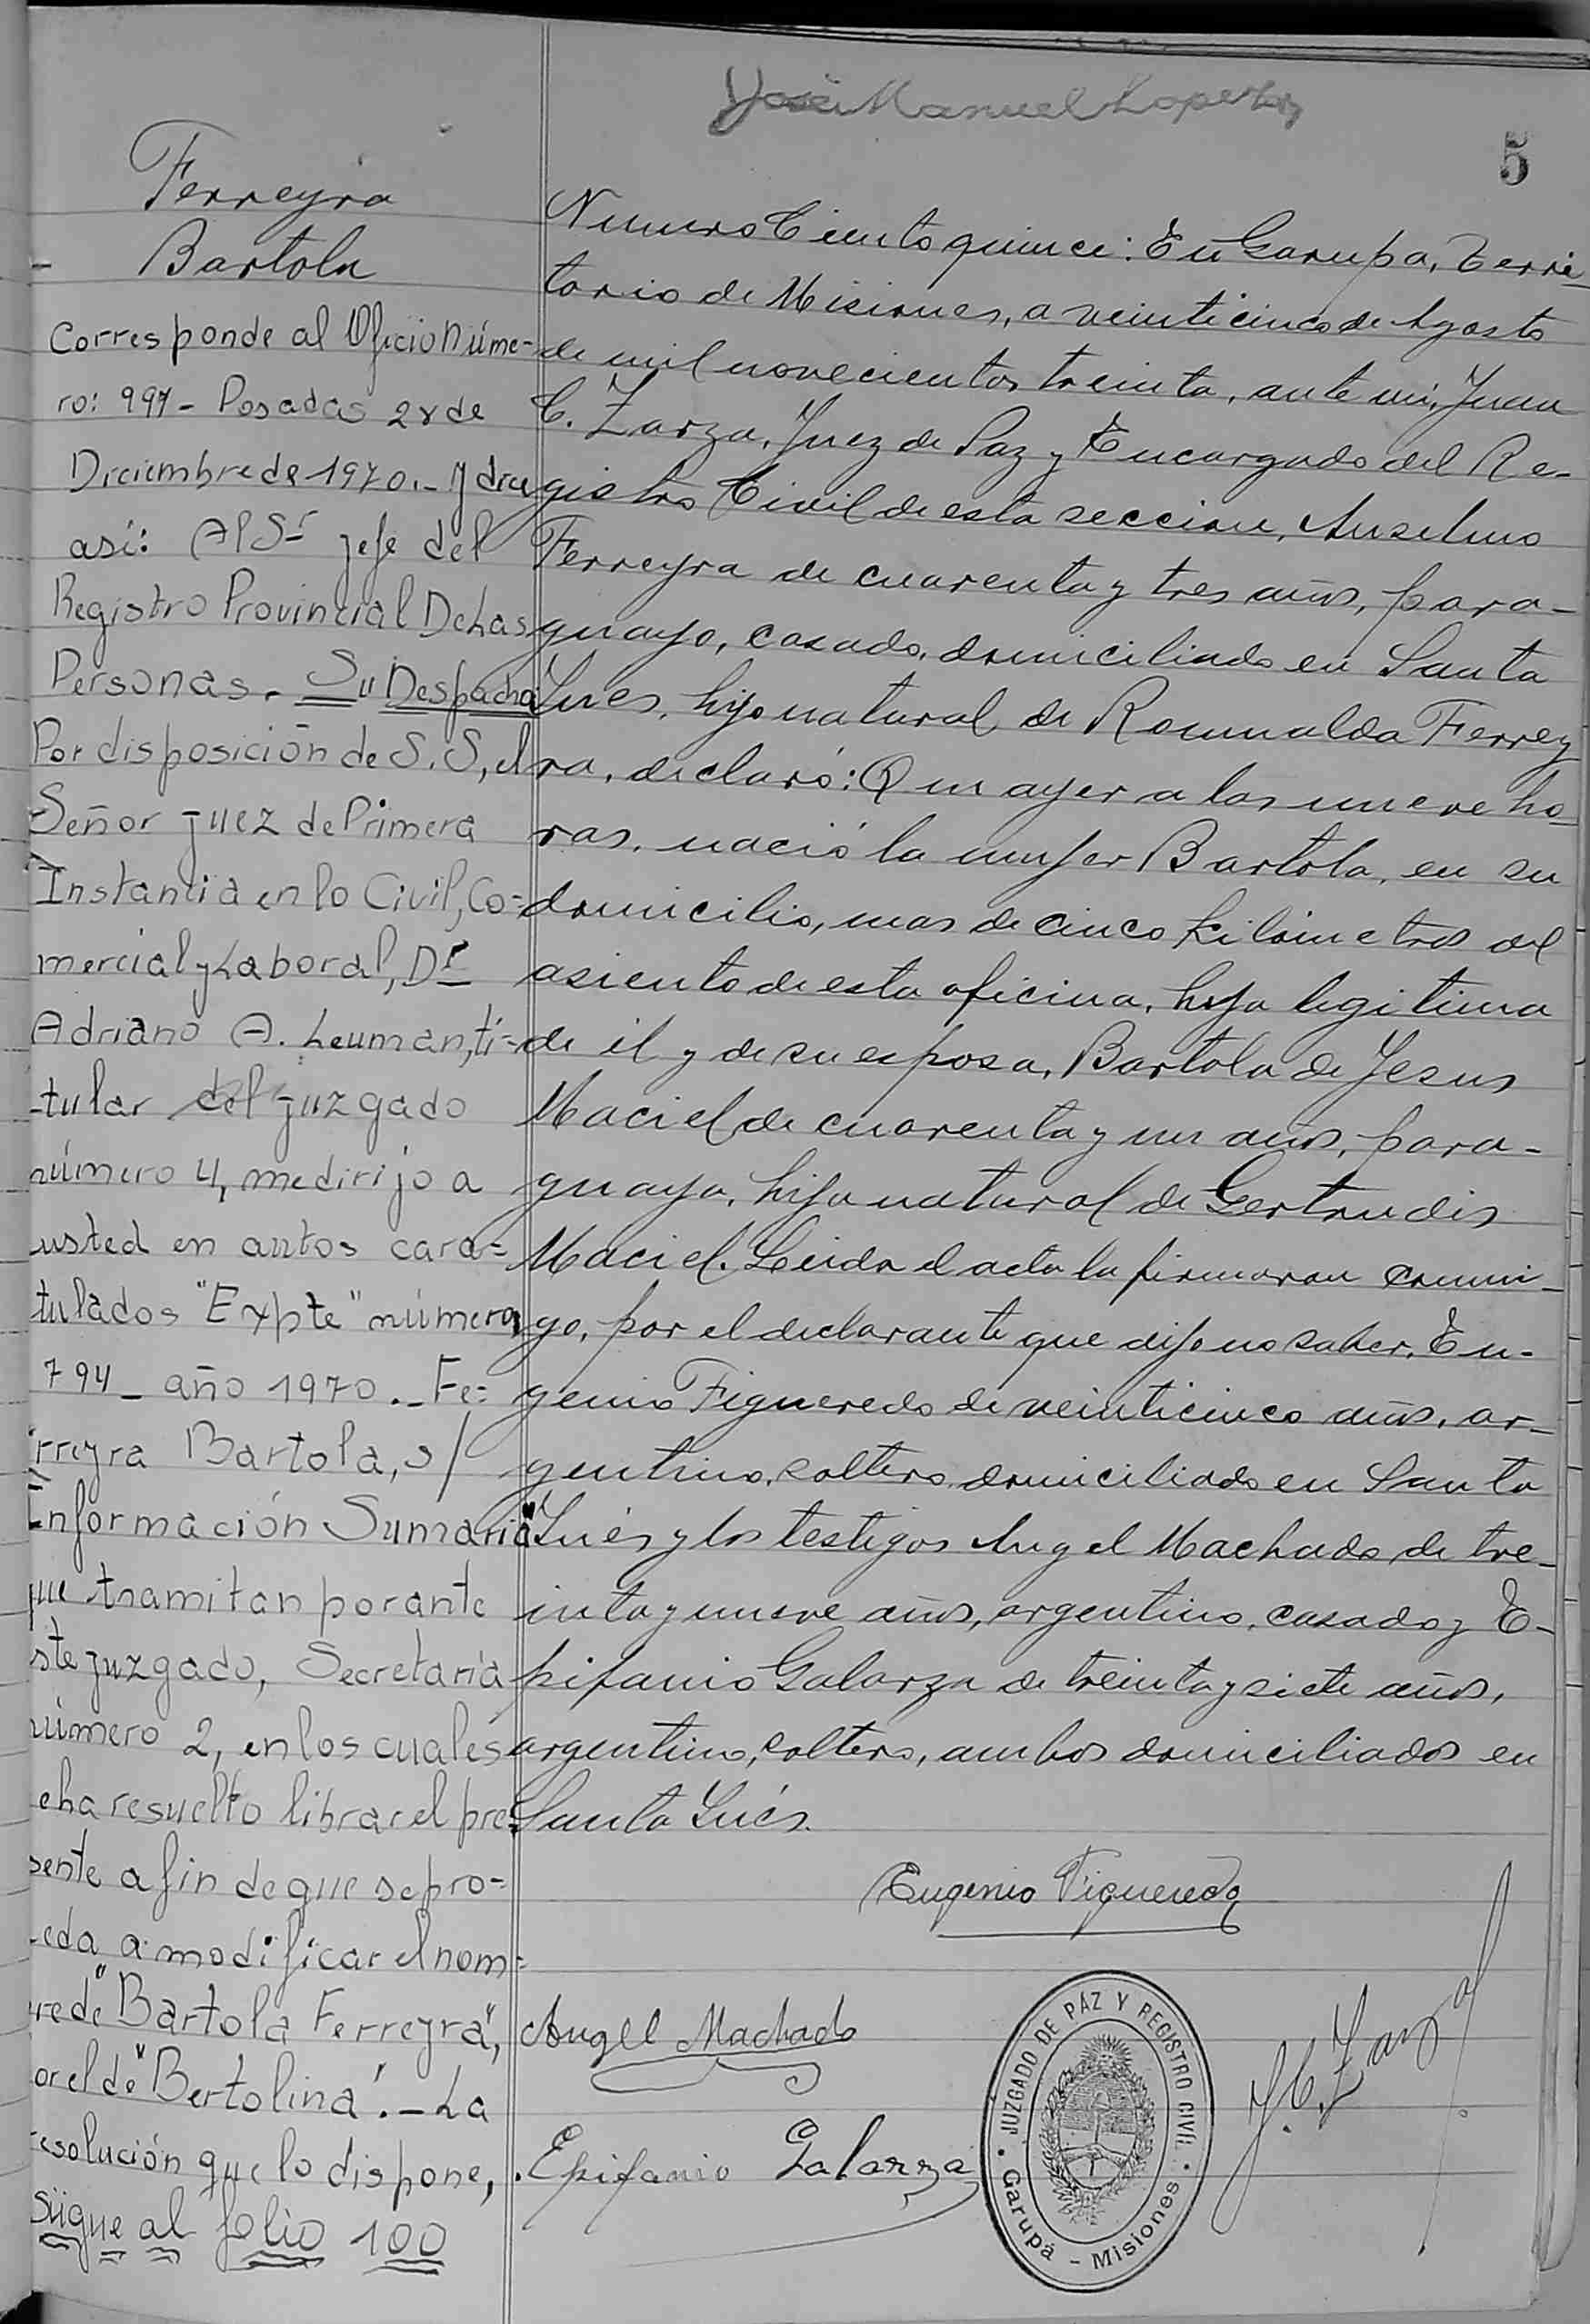 José Manuel Lopez
5
Ferreyra
Bartola
Corresponde al Oficio núme-
ro: 997 - Posadas 28 de
Diciembre de 1970.- y dice
así: Al Sr jefe del
Registro Provincial De Las
Personas. Su Despacho
Por disposición de S.S, el
Señor juez de Primera
Instancia en lo Civil, Co-
mercial y Laboral, Dr
Adriano A. Leuman, ti-
tular del juzgado
número 4, me dirijo a
usted en autos cara-
tulados "Expte" número
794 - año 1970.- Fe-
rreyra Bartola, s/
Información Sumaria"
que tramitan por ante
ste juzgado, Secretaría
número 2, en los cuales
e ha resuelto librar el pre-
sente a fin de que se pro-
eda a modificar el nom-
re de "Bartola Ferreyra",
or el de "Bertolina".- La
resolución que lo dispone,
sigue al folio 100
Numero Ciento quince: En Garupa, Terri-
torio de Misiones, a veinticinco de Agosto
de mil novecientos treinta, ante mi, Juan
C. Zarza, Juez de Paz y Encargado del Re-
gistro Civil de esta seccion, Anselmo
Ferreyra de cuarenta y tres años, para-
guayo, casado, domiciliado en Santa
Ines, hijo natural de Romualda Ferrey
ra, declaró: Que ayer a las nueve ho-
ras, nació la mujer Bartola, en su
domicilio, mas de cinco kilómetros del
asiento de esta oficina, hija legitima
de él y de su esposa, Bartola de Jesus
Maciel de cuarenta y un años, para-
guaya, hija natural de Gertrudis
Maciel. Leida el acta la firmaron conmi-
go, por el declarante que dijo no saber, Eu-
genio Figueredo de veinticinco años, ar-
gentino, soltero, domiciliado en Santa
Inés y los testigos Angel Machado de tre-
inta y nueve años, argentino, casado y E-
pifanio Galarza de treinta y siete años,
argentino, soltero, ambos domiciliados en
Santa Inés.
Eugenio Figueredo
Angel Machado
Epifanio Galarza
J.C. Zarza
JUZGADO DE PAZ Y REGISTRO CIVIL
Garupá - Misiones